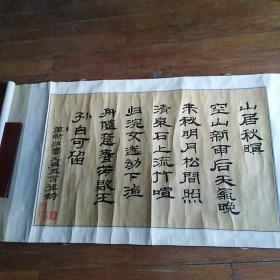 山居秋暝
空山新雨后天气晚
来秋明月松间照
清泉石上流竹喧
归浣女莲动下渔
舟随意春芳歇王
孙自可留